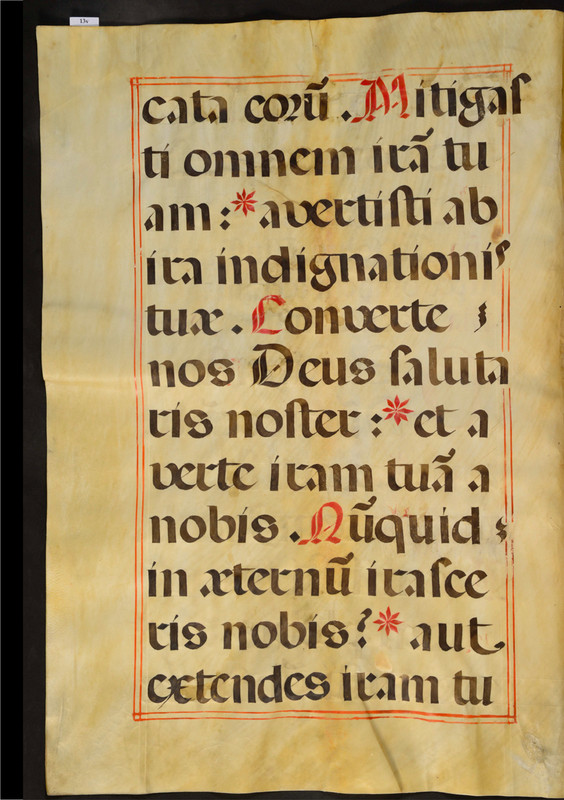 13v
cata eorū . Mitigaſ
ti omnem irā tu
am :* avertiſti ab
ira indignationis
tuæ . Converte
nos Deus ſaluta
ris noſter :* et a
verte iram tuā a
nobis . Nūquid
in æternū iraſce
ris nobis ? * aut
extendes iram tu